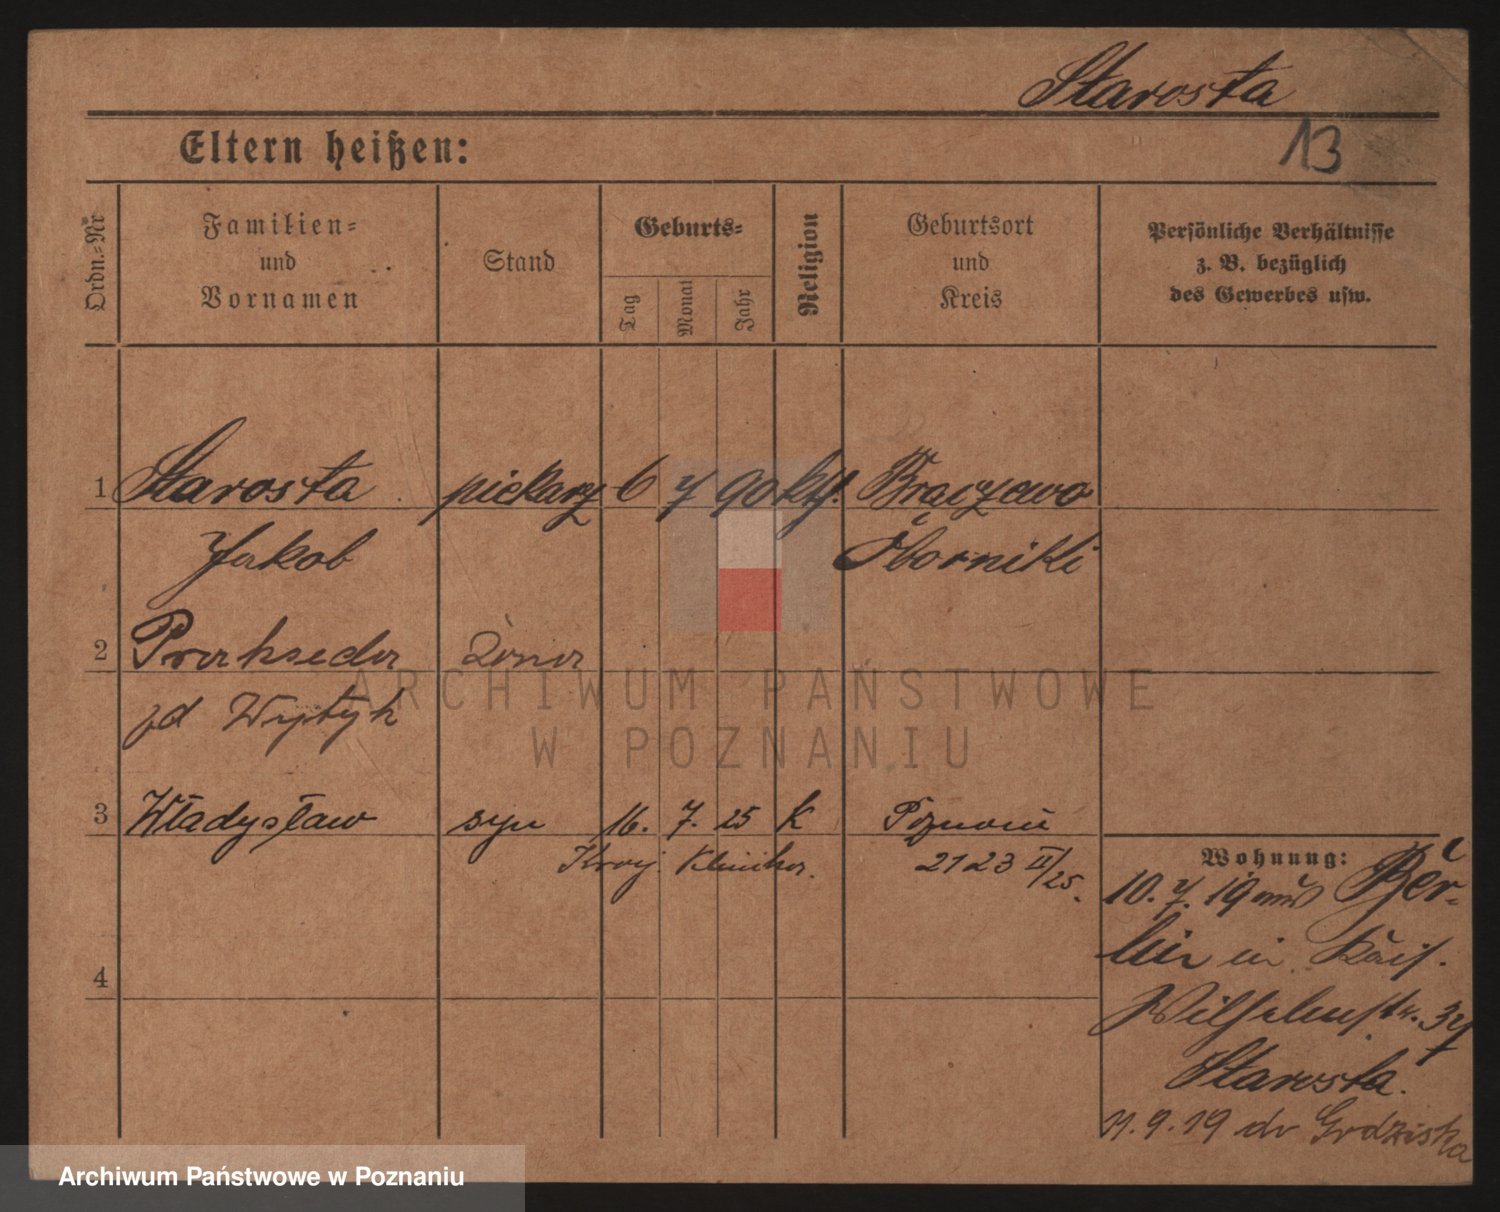 Starosta
Eltern heißen:
13
Ordn.-Nr
Familien- und Vornamen
Stand
Geburts-
Tag
Monat
Jahr
Religion
Geburtsort und Kreis
Persönliche Verhältnisse
z. B. bezüglich
des Gewerbes usw.
1 Starosta piekarz 6 7 90 kth. Brączewo
Jakob Oborniki
2 Prakseda żona
zd Wojtyk
3 Władysław syn 16. 7. 25 k Poznań
Kraj. Klinika. 2123 II/25.
Wohnung:
10. 7. 19 aus Ber-
lin in Kais.
Wilhelmstr. 37
Starosta.
4
11. 9. 19 do Grodziska
ARCHIWUM PAŃSTWOWE
W POZNANIU
Archiwum Państwowe w Poznaniu